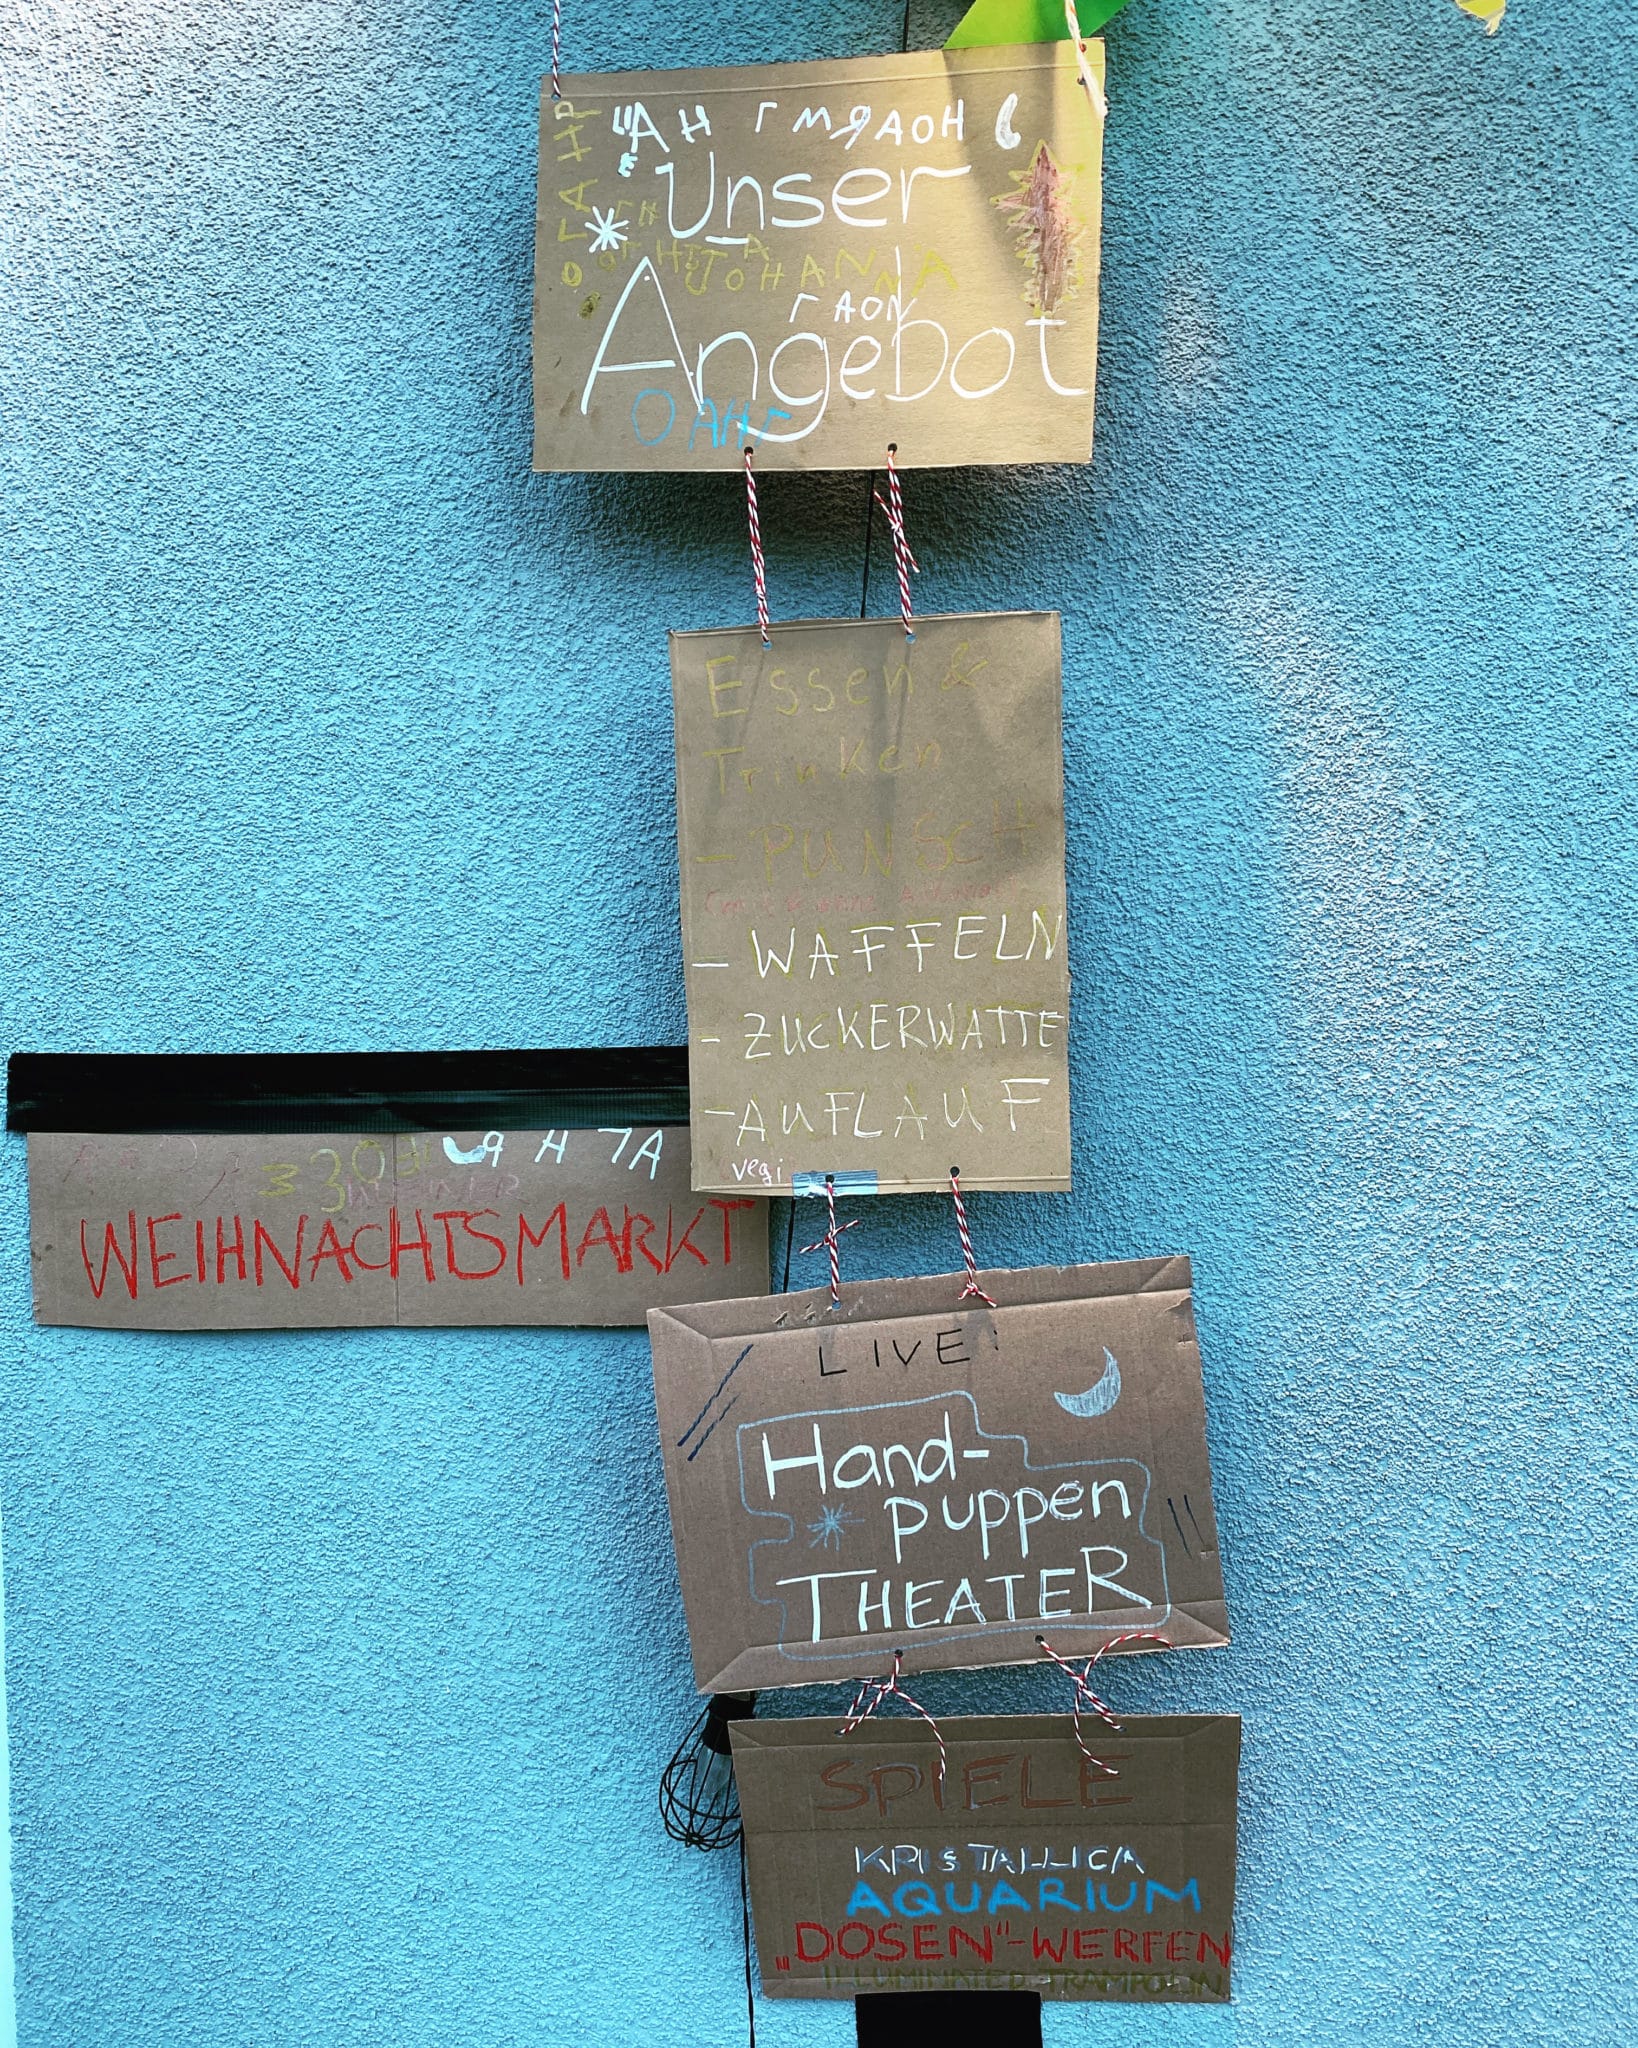 Unser
JOHANNA
Angebot
Essen &
Trinken
- PUNSCH
- WAFFELN
- ZUCKERWATTE
- AUFLAUF
vegi
WEIHNACHTSMARKT
LIVE:
Hand-
puppen
THEATER
SPIELE
KRISTALLICA
AQUARIUM
„DOSEN"-WERFEN
ILLUMINATED TRAMPOLIN